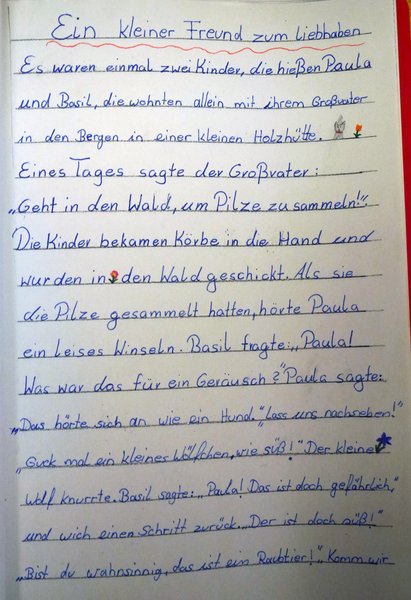 Ein kleiner Freund zum liebhaben
Es waren einmal zwei Kinder, die hießen Paula
und Basil, die wohnten allein mit ihrem Großvater
in den Bergen in einer kleinen Holzhütte.
Eines Tages sagte der Großvater:
„Geht in den Wald, um Pilze zu sammeln!“
Die Kinder bekamen Körbe in die Hand und
wurden in den Wald geschickt. Als sie
die Pilze gesammelt hatten, hörte Paula
ein leises Winseln. Basil fragte: „Paula!
Was war das für ein Geräusch?“ Paula sagte:
„Das hörte sich an wie ein Hund.“ „Lass uns nachsehen!“
„Guck mal ein kleines Wölfchen, wie süß!“ Der kleine
Wolf knurrte. Basil sagte: „Paula! Das ist doch gefährlich,“
und wich einen Schritt zurück. „Der ist doch süß!“
„Bist du wahnsinnig, das ist ein Raubtier!“ „Komm wir